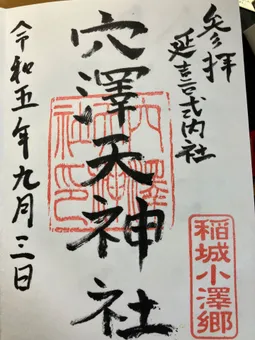 参拝
延喜式内社
穴澤天神社
令和五年九月三日
稲城小澤郷